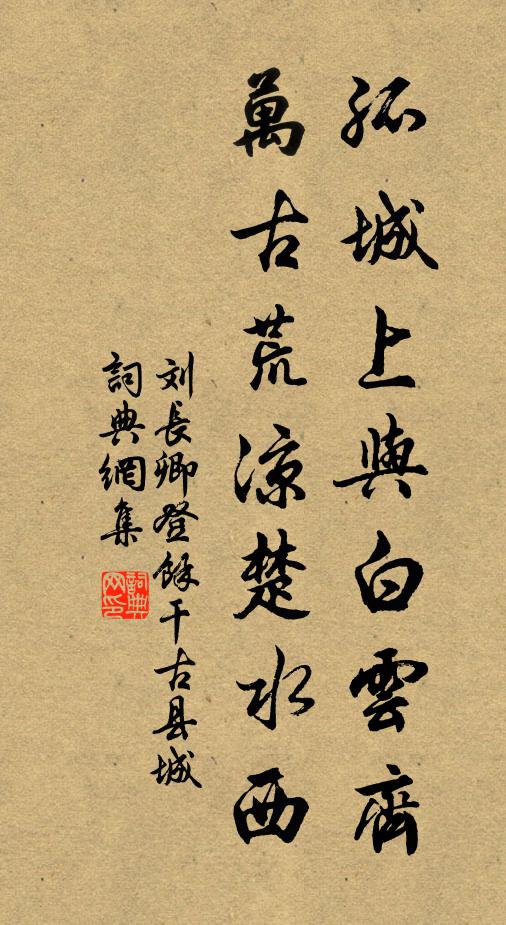 孤城上與白雲齊
萬古荒涼楚水西
刘長卿登餘干古县城
詞典網集
詞典网印